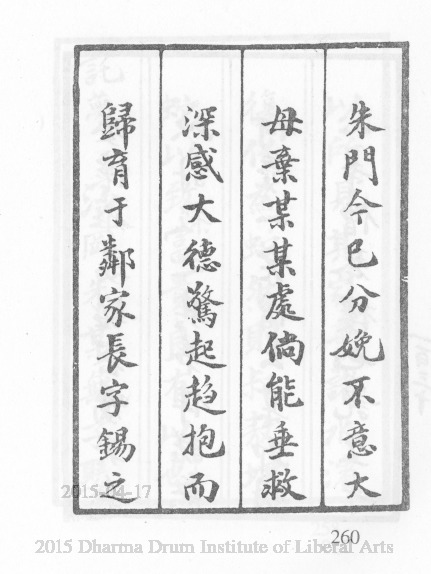 朱門今已分娩不意大
母棄某某處倘能垂救
深感大德驚起趋抱而
歸育于鄰家長字錫之
260
2015-04-17
2015 Dharma Drum Institute of Liberal Arts